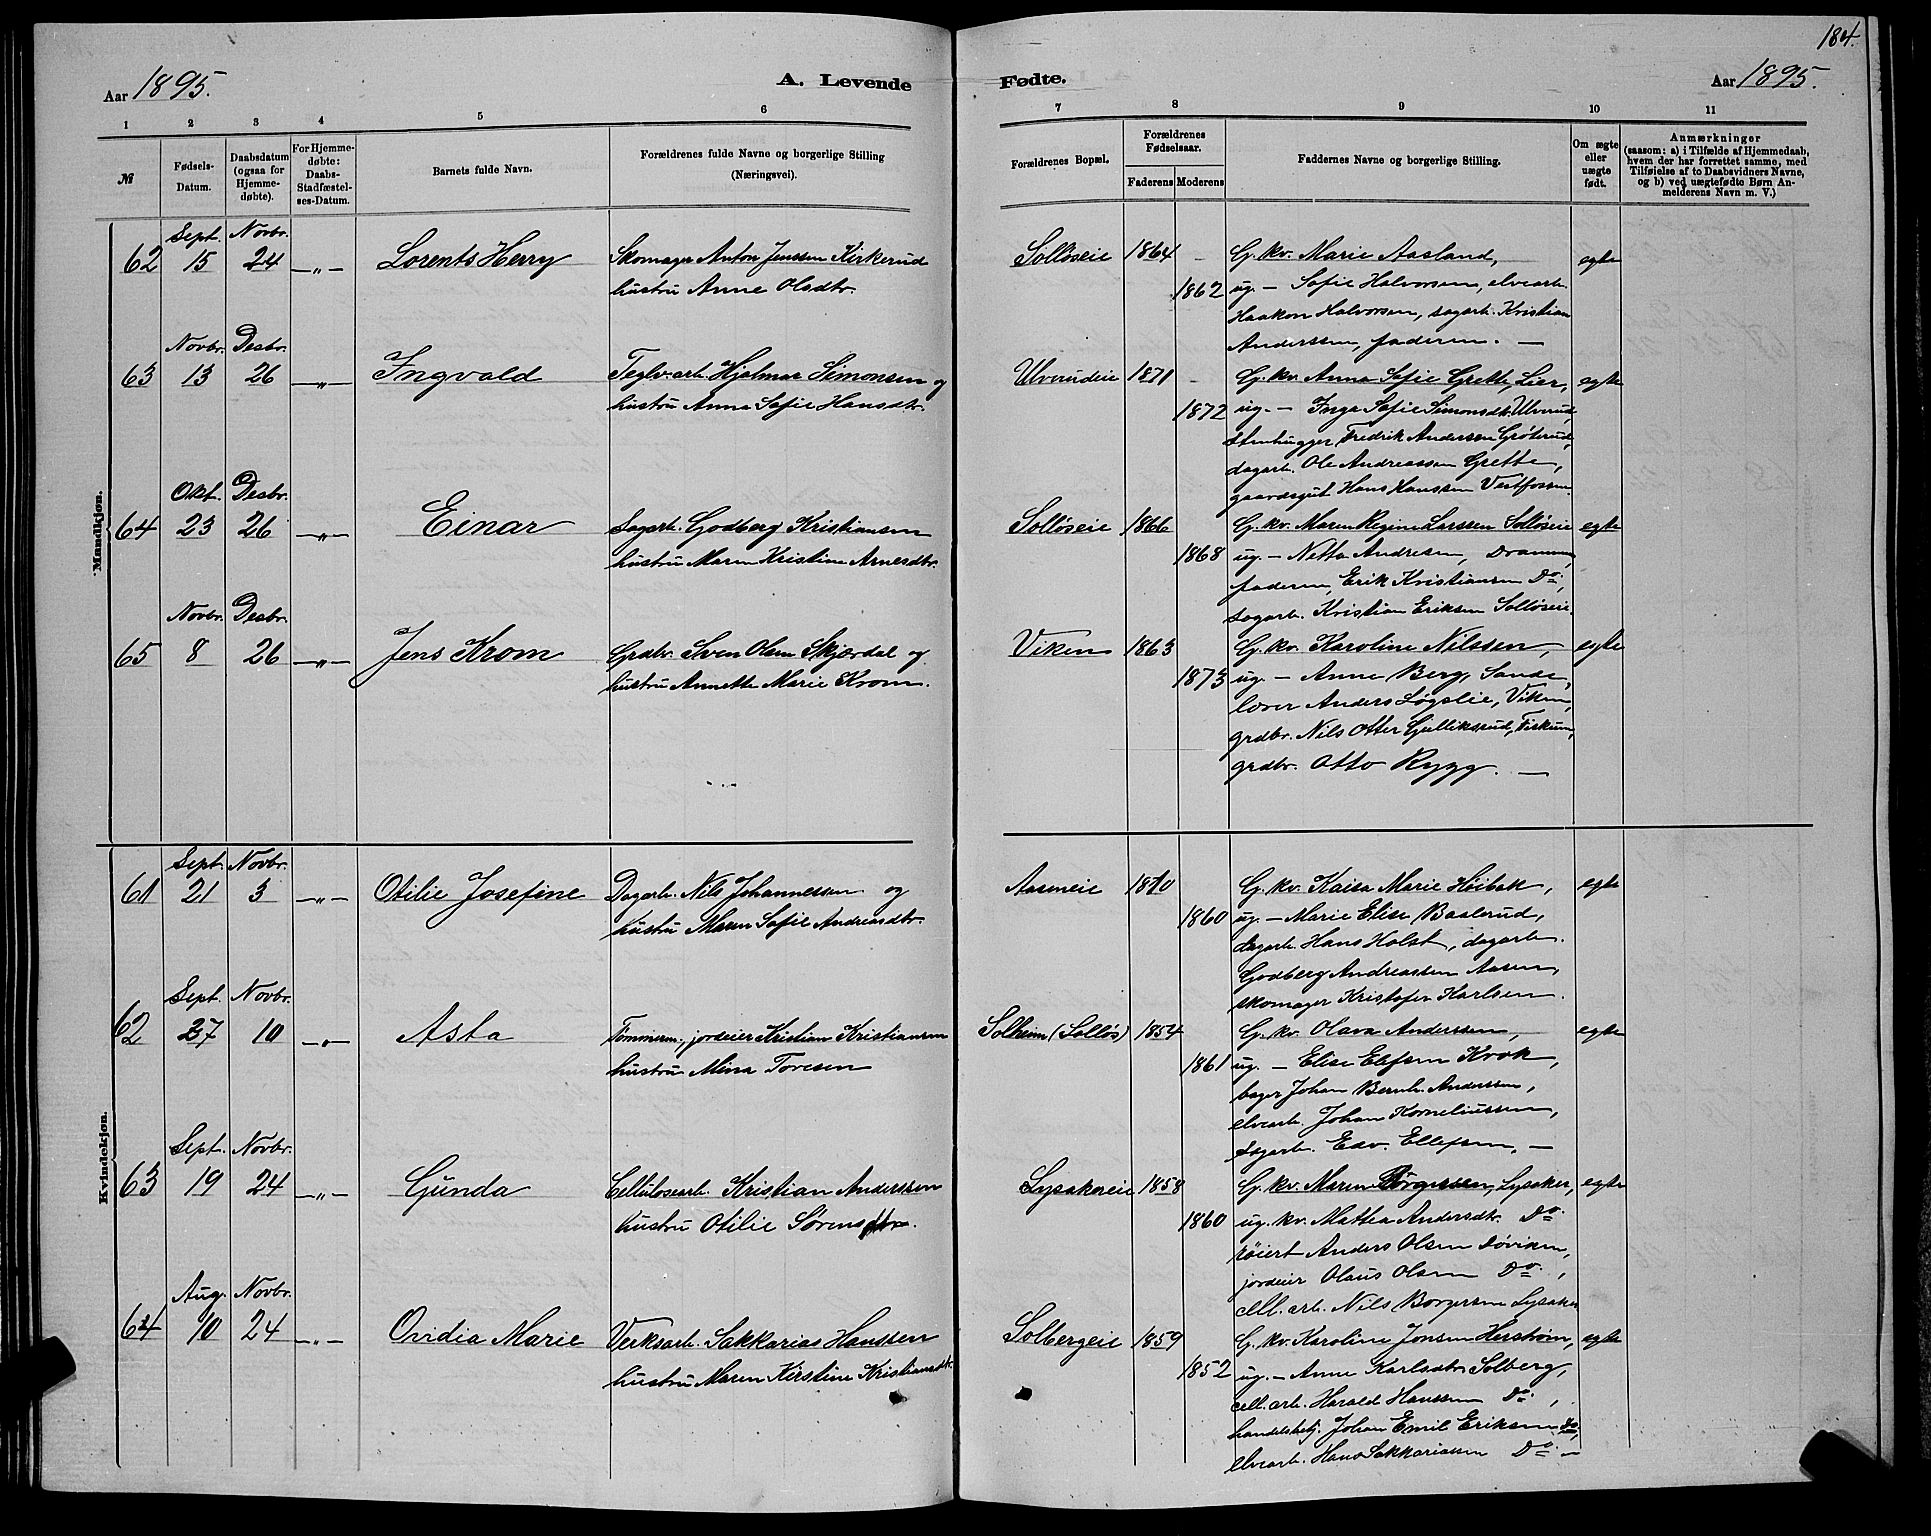 184.
Aar 1895.
A. Levende
Fødte.
Aar 1895.
1
2
3
4
5
6
7
8
9
10
11
№
Fødsels-
Datum.
Daabsdatum
(ogsaa for
Hjemme-
døbte).
For Hjemme-
døbte:
Daabs-
Stadfæstel-
ses-Datum.
Barnets fulde Navn.
Forældrenes fulde Navne og borgerlige Stilling
(Næringsvei).
Forældrenes Bopæl.
Forældrenes
Fødselsaar.
Faderens
Moderens
Faddernes Navne og borgerlige Stilling.
Om ægte
eller
uægte
født.
Anmærkninger
(saasom: a) i Tilfælde af Hjemmedaab,
hvem der har forrettet samme, med
Tilføielse af to Daabsvidners Navne,
og b) ved uægtefødte Børn An-
melderens Navn m. V.)
Mandkjøn.
Sept. Novbr.
62 15 24 —„— Lorents Herry Skomager Anton Jenssen Kirkerud
hustru Anne Olsdtr.
Solløseie 1864 - G. kv. Marie Aasland, egte
1862 ug. — Sofie Halvorsen, elvearb.
Haakon Halvorsen, sagarb. Kristian
Anderssen, faderen. —
Novbr. Desbr.
63 13 26 —„— Ingvald Teglv.arb. Hjalmar Simonsen og
hustru Anna Sofie Hansdtr.
Ulverudeie 1871 - G. kv. Anna Sofie Grette, Lier, egte
1872 ug. — Inga Sofie Simonsdt. Ulverud,
stenhugger Fredrik Anderssen Grøterud,
dagarb. Ole Andreassen Grette,
gaardsgut Hans Hanssen Vestfossen.
Okt. Desbr.
64 23 26 —„— Einar Sagarb. Godberg Kristiansen
hustru Maren Kristine Arnesdtr.
Solløseie 1866 G. kv. Maren Regine Larssen Solløseie egte
1868 ug. — Netta Andresen, Drammen,
faderen, Erik Kristiansen Do.,
sagarb. Kristian Eriksen Solløseie.
Novbr. Desbr.
65 8 26 —„— Jens Krom Grdbr. Sven Olsen Skjærdal og
hustru Annette Marie Krom.
Viken 1863 G. kv. Karoline Nilssen, egte
1873 ug. — Anne Berg, Sande,
lærer Anders Løgslie, Viken,
grdbr. Nils Otter Gulliksrud, Fiskum,
grdbr. Otto Rygg. —
Kvindekjøn.
Sept. Novbr.
61 21 3 —„— Otilie Josefine Dagarb. Nils Johannessen og
hustru Maren Sofie Andreasdtr.
Aaseneie 1870 G. kv. Kaisa Marie Høibak, egte
1860 ug. — Marie Elise Baslerud,
dagarb. Hans Holst, dagarb.
Godberg Andreassen Aasen,
skomager Kristofer Karlsen.
Sept. Novbr.
62 27 10 —„— Asta Tømmerm., jordeier Kristian Kristiansen
hustru Mina Toresen
Solheim (Solløs) 1854 G. kv. Olava Anderssen, egte
1861 ug. — Elise Elefsen Krok,
bager Johan Bernh. Anderssen,
elvearb. Johan Korneliussen,
sagarb. Edv. Ellefsen, —
Sept. Novbr.
63 19 24 —„— Gunda Cellulosearb. Kristian Anderssen
hustru Otilie Sørensdtr.
Lysakereie 1858 G. kv. Maren Borgersen, Lysaker, egte
1860 ug. kv. Mattea Andersdtr. Do.
røiert Anders Olsen Døviken,
jordeier Olaus Olsen Do.,
cell. arb. Nils Borgersen Lysaker
Aug. Novbr.
64 10 24 —„— Ovidia Marie Verksarb. Sakkarias Hanssen
hustru Maren Kirstine Kristiansdt.
Solbergeie 1859 G. kv. Karoline Jonsen Herstrøm, egte
1852 ug. — Anne Karlsdtr. Solberg,
cell. arb. Harald Hanssen Do.,
handelsbetj. Johan Emil Eriksen Do.,
elvearb. Hans Sakkariassen Do. —